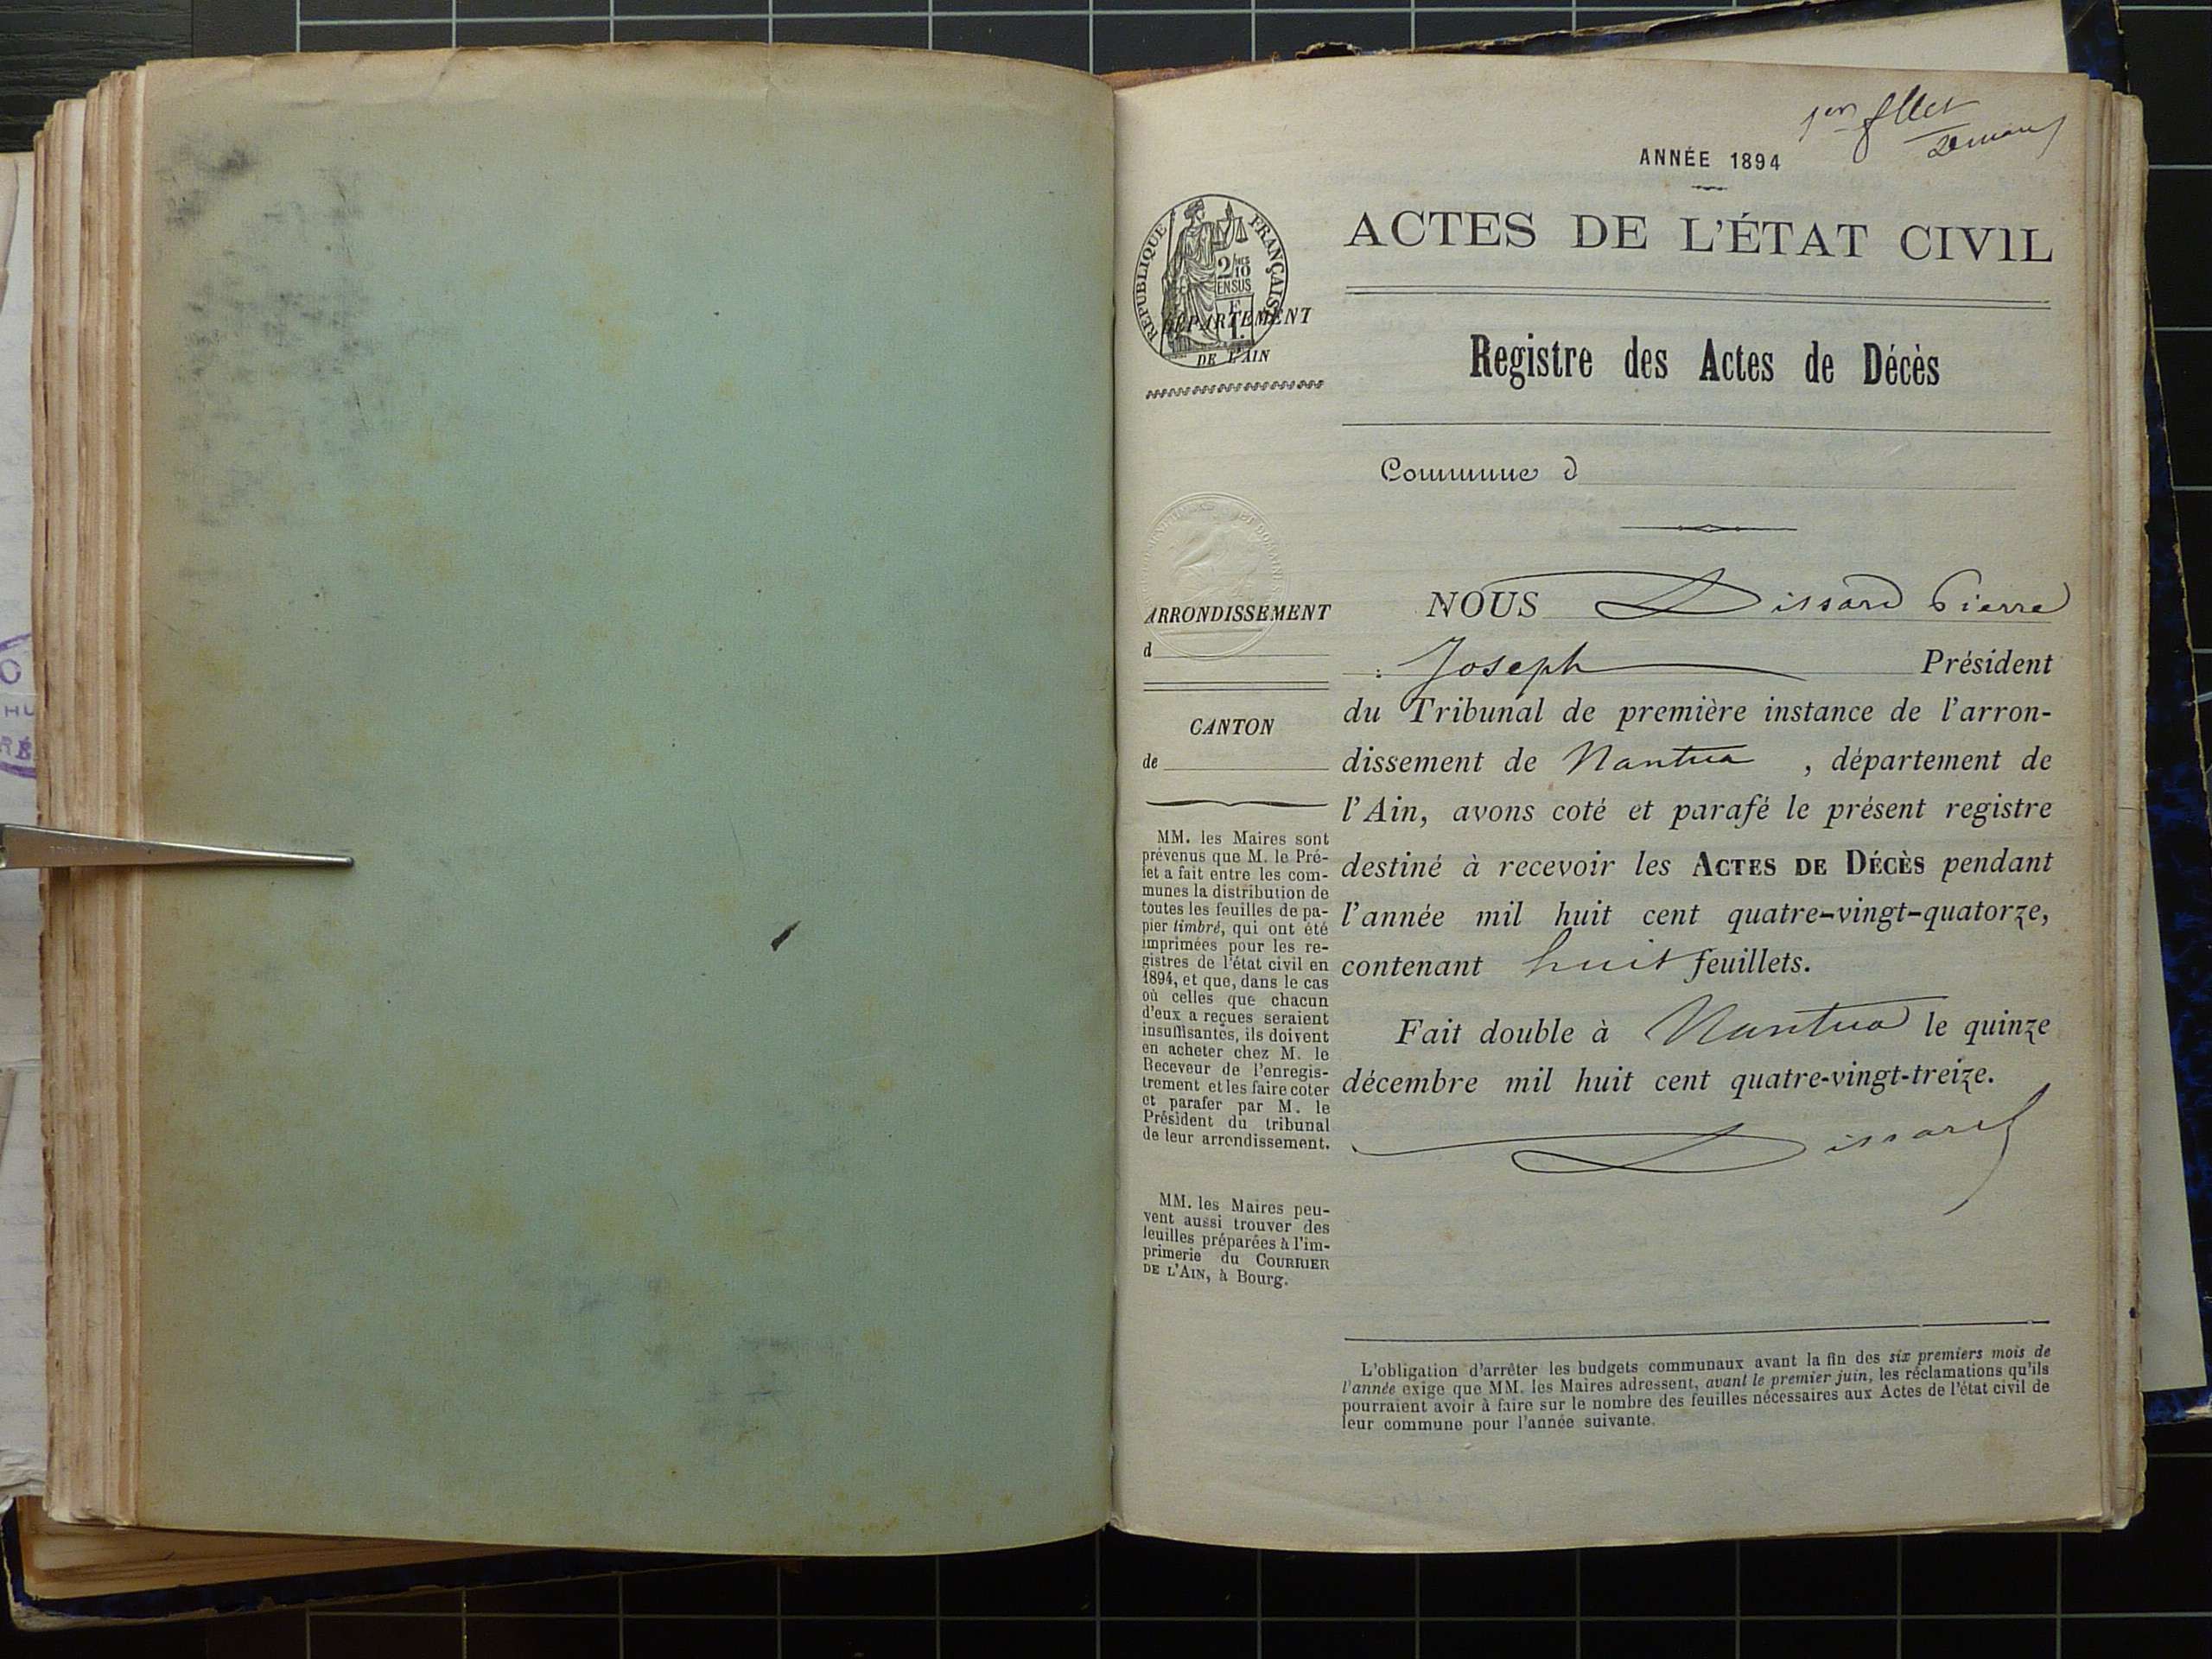 1er fllet
ANNÉE 1894
ACTES DE L'ÉTAT CIVIL
RÉPUBLIQUE FRANÇAISE
2/10
EN SUS
DÉPARTEMENT
DE L'AIN
Registre des Actes de Décès
Commune d
ARRONDISSEMENT
d
CANTON
de
MM. les Maires sont
prévenus que M. le Pré-
fet a fait entre les com-
munes la distribution de
toutes les feuilles de pa-
pier timbré, qui ont été
imprimées pour les re-
gistres de l'état civil en
1894, et que, dans le cas
où celles que chacun
d'eux a reçues seraient
insuffisantes, ils doivent
en acheter chez M. le
Receveur de l'enregis-
trement et les faire coter
et parafer par M. le
Président du tribunal
de leur arrondissement.
MM. les Maires peu-
vent aussi trouver des
feuilles préparées à l'im-
primerie du COURRIER
DE L'AIN, à Bourg.
NOUS Dissard Pierre
Joseph Président
du Tribunal de première instance de l'arron-
dissement de Nantua , département de
l'Ain, avons coté et parafé le présent registre
destiné à recevoir les ACTES DE DÉCÈS pendant
l'année mil huit cent quatre-vingt-quatorze,
contenant huit feuillets.
Fait double à Nantua le quinze
décembre mil huit cent quatre-vingt-treize.
Dissard
L'obligation d'arrêter les budgets communaux avant la fin des six premiers mois de
l'année exige que MM. les Maires adressent, avant le premier juin, les réclamations qu'ils
pourraient avoir à faire sur le nombre des feuilles nécessaires aux Actes de l'état civil de
leur commune pour l'année suivante.